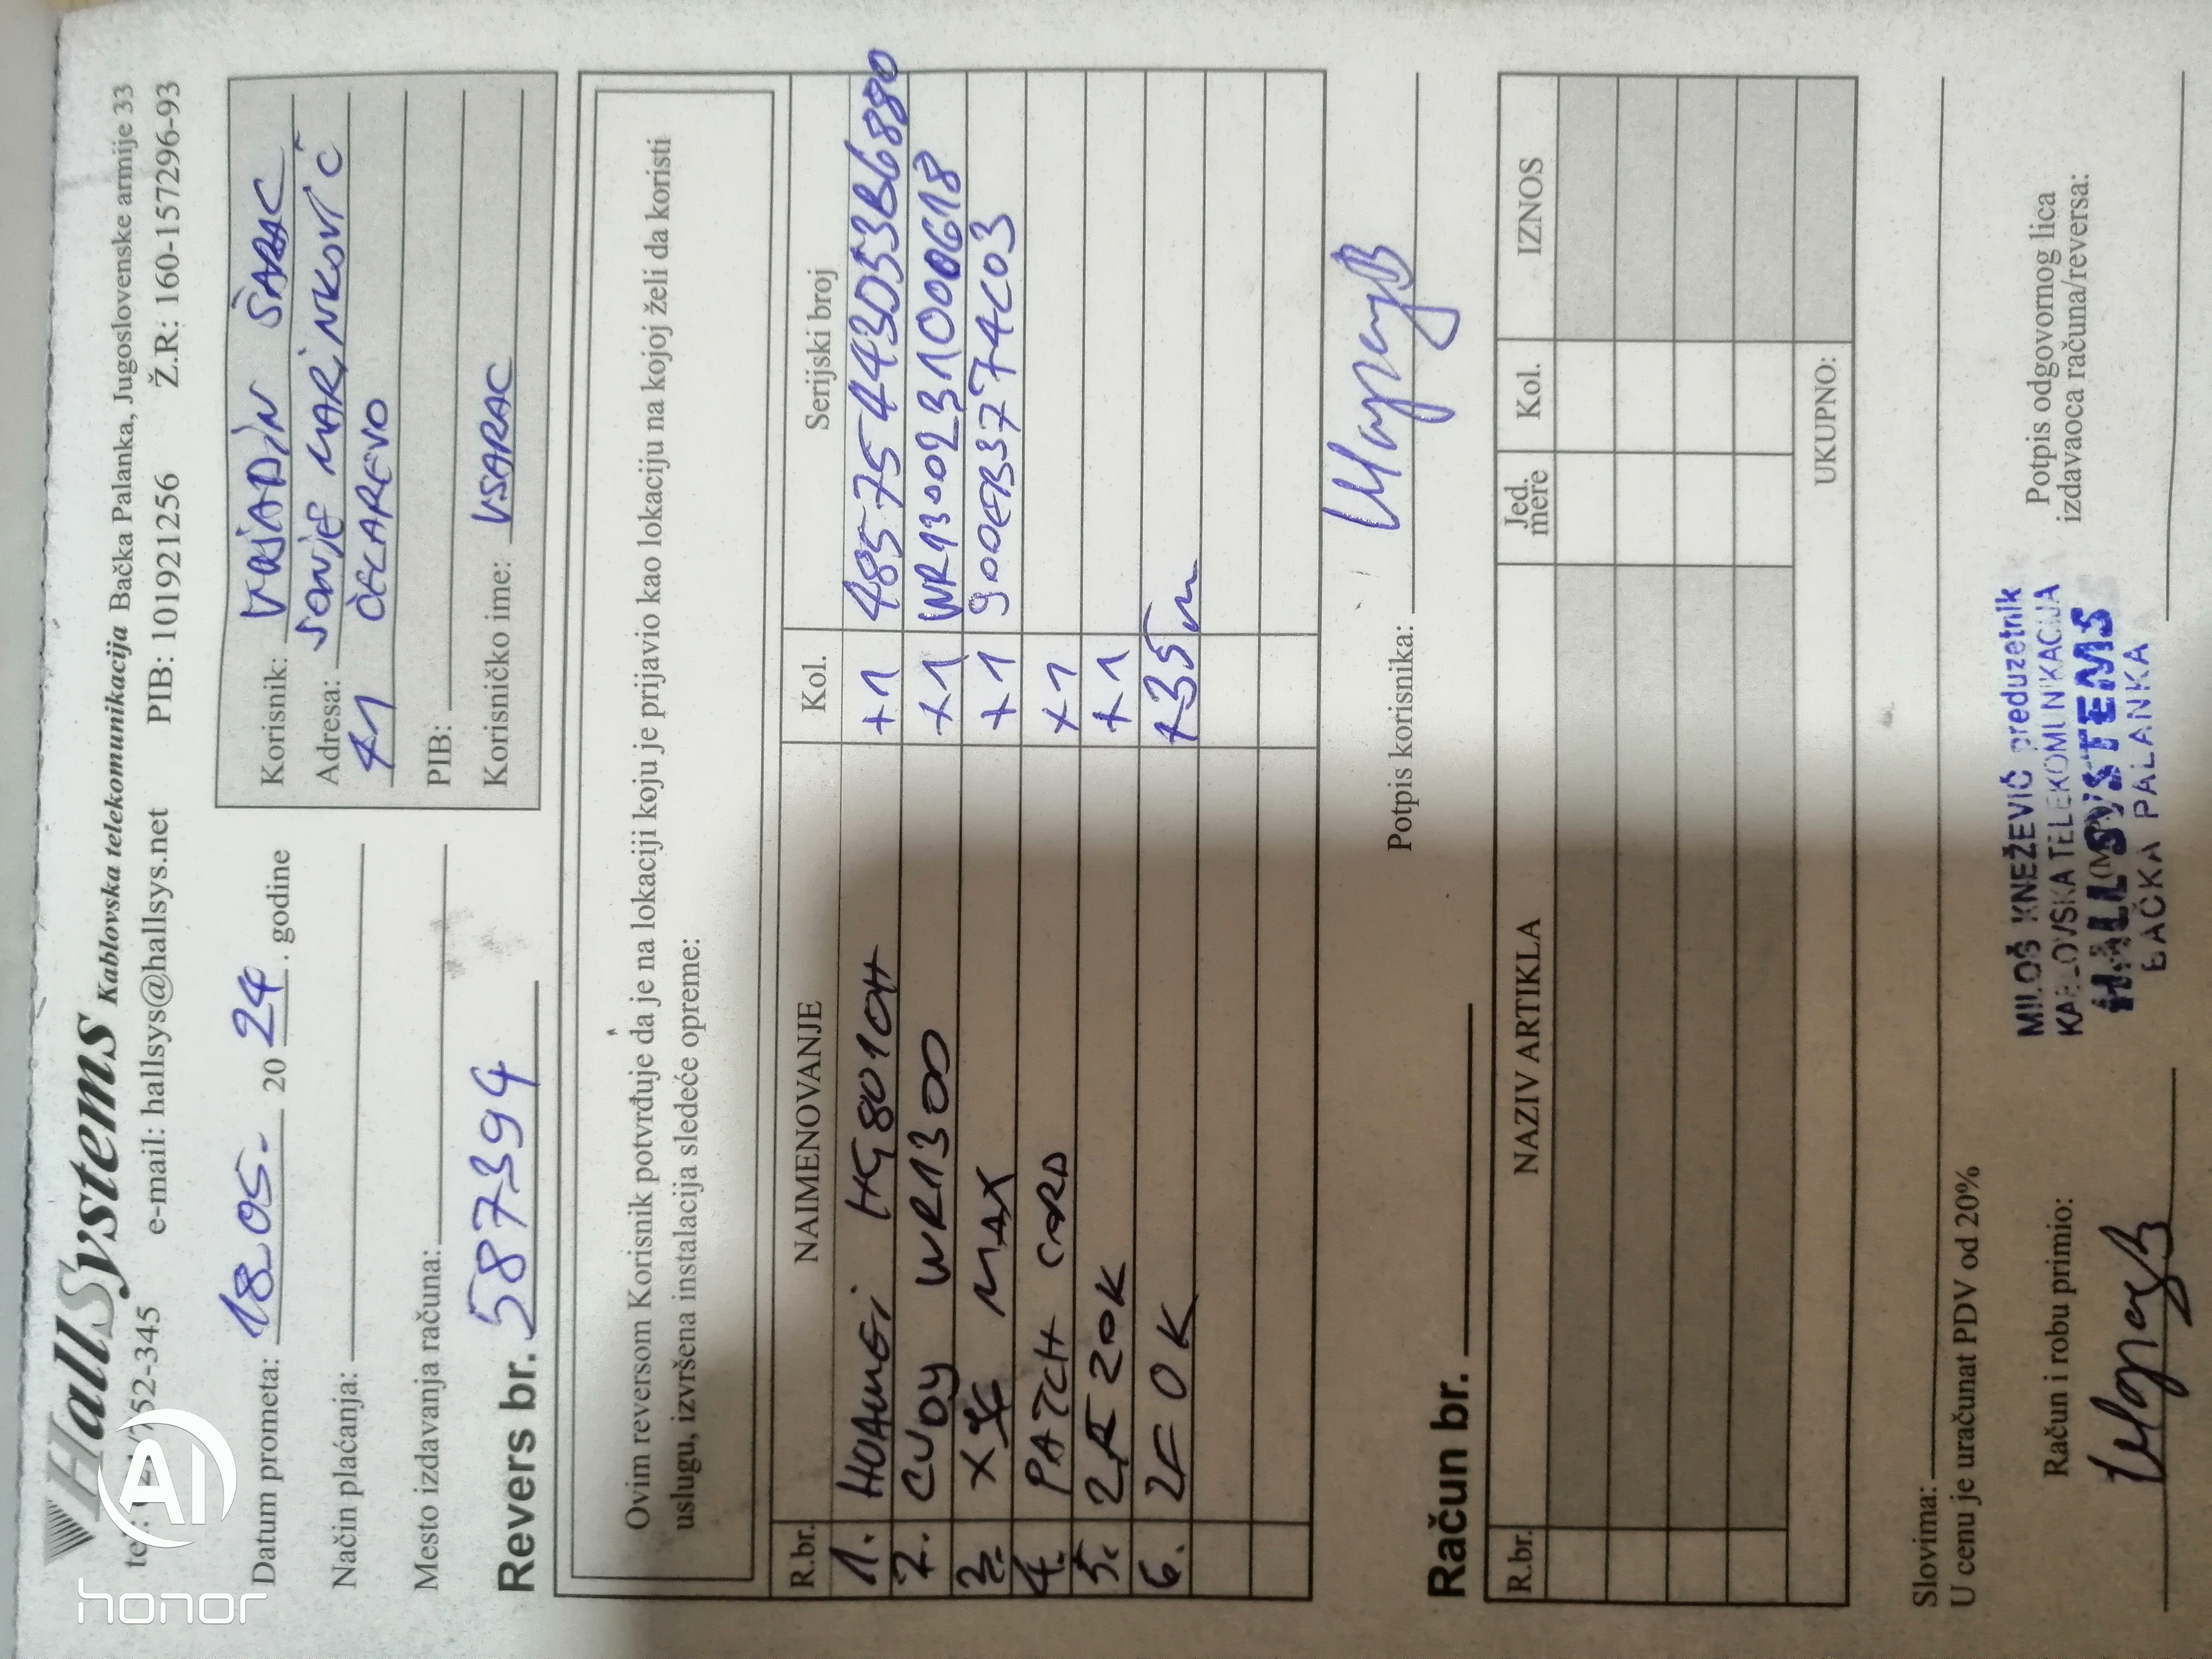 HallSystems Kablovska telekomunikacija Bačka Palanka, Jugoslovenske armije 33
/752-345 e-mail: hallsys@hallsys.net PIB: 101921256 Ž.R: 160-157296-93
Datum prometa: 18.05. 2024. godine
Način plaćanja:
Mesto izdavanja računa:
Revers br. 587394
Korisnik: VUJADIN ŠARAC
Adresa: SONJE MARINKOVIĆ
41 ČELAREVO
PIB:
Korisničko ime: VSARAC
Ovim reversom Korisnik potvrđuje da je na lokaciji koju je prijavio kao lokaciju na kojoj želi da koristi
uslugu, izvršena instalacija sledeće opreme:
R.br. NAIMENOVANJE Kol. Serijski broj
1. HUAWEI HG8010H +1 485754443D53B6880
2. CUDY WR1300 +1 WR1300231000618
3. MAX +1 900EB3774C03
4. PATCH CORD +1
5. +1
6. +35m
Potpis korisnika:
Račun br.
R.br. NAZIV ARTIKLA Jed. mere Kol. IZNOS
UKUPNO:
Slovima:
U cenu je uračunat PDV od 20%
Račun i robu primio:
MILOŠ KNEŽEVIĆ preduzetnik
KABLOVSKA TELEKOMUNIKACIJA
HALL SYSTEMS
BAČKA PALANKA
(M.P.)
Potpis odgovornog lica
izdavaoca računa/reversa:
AI
honor